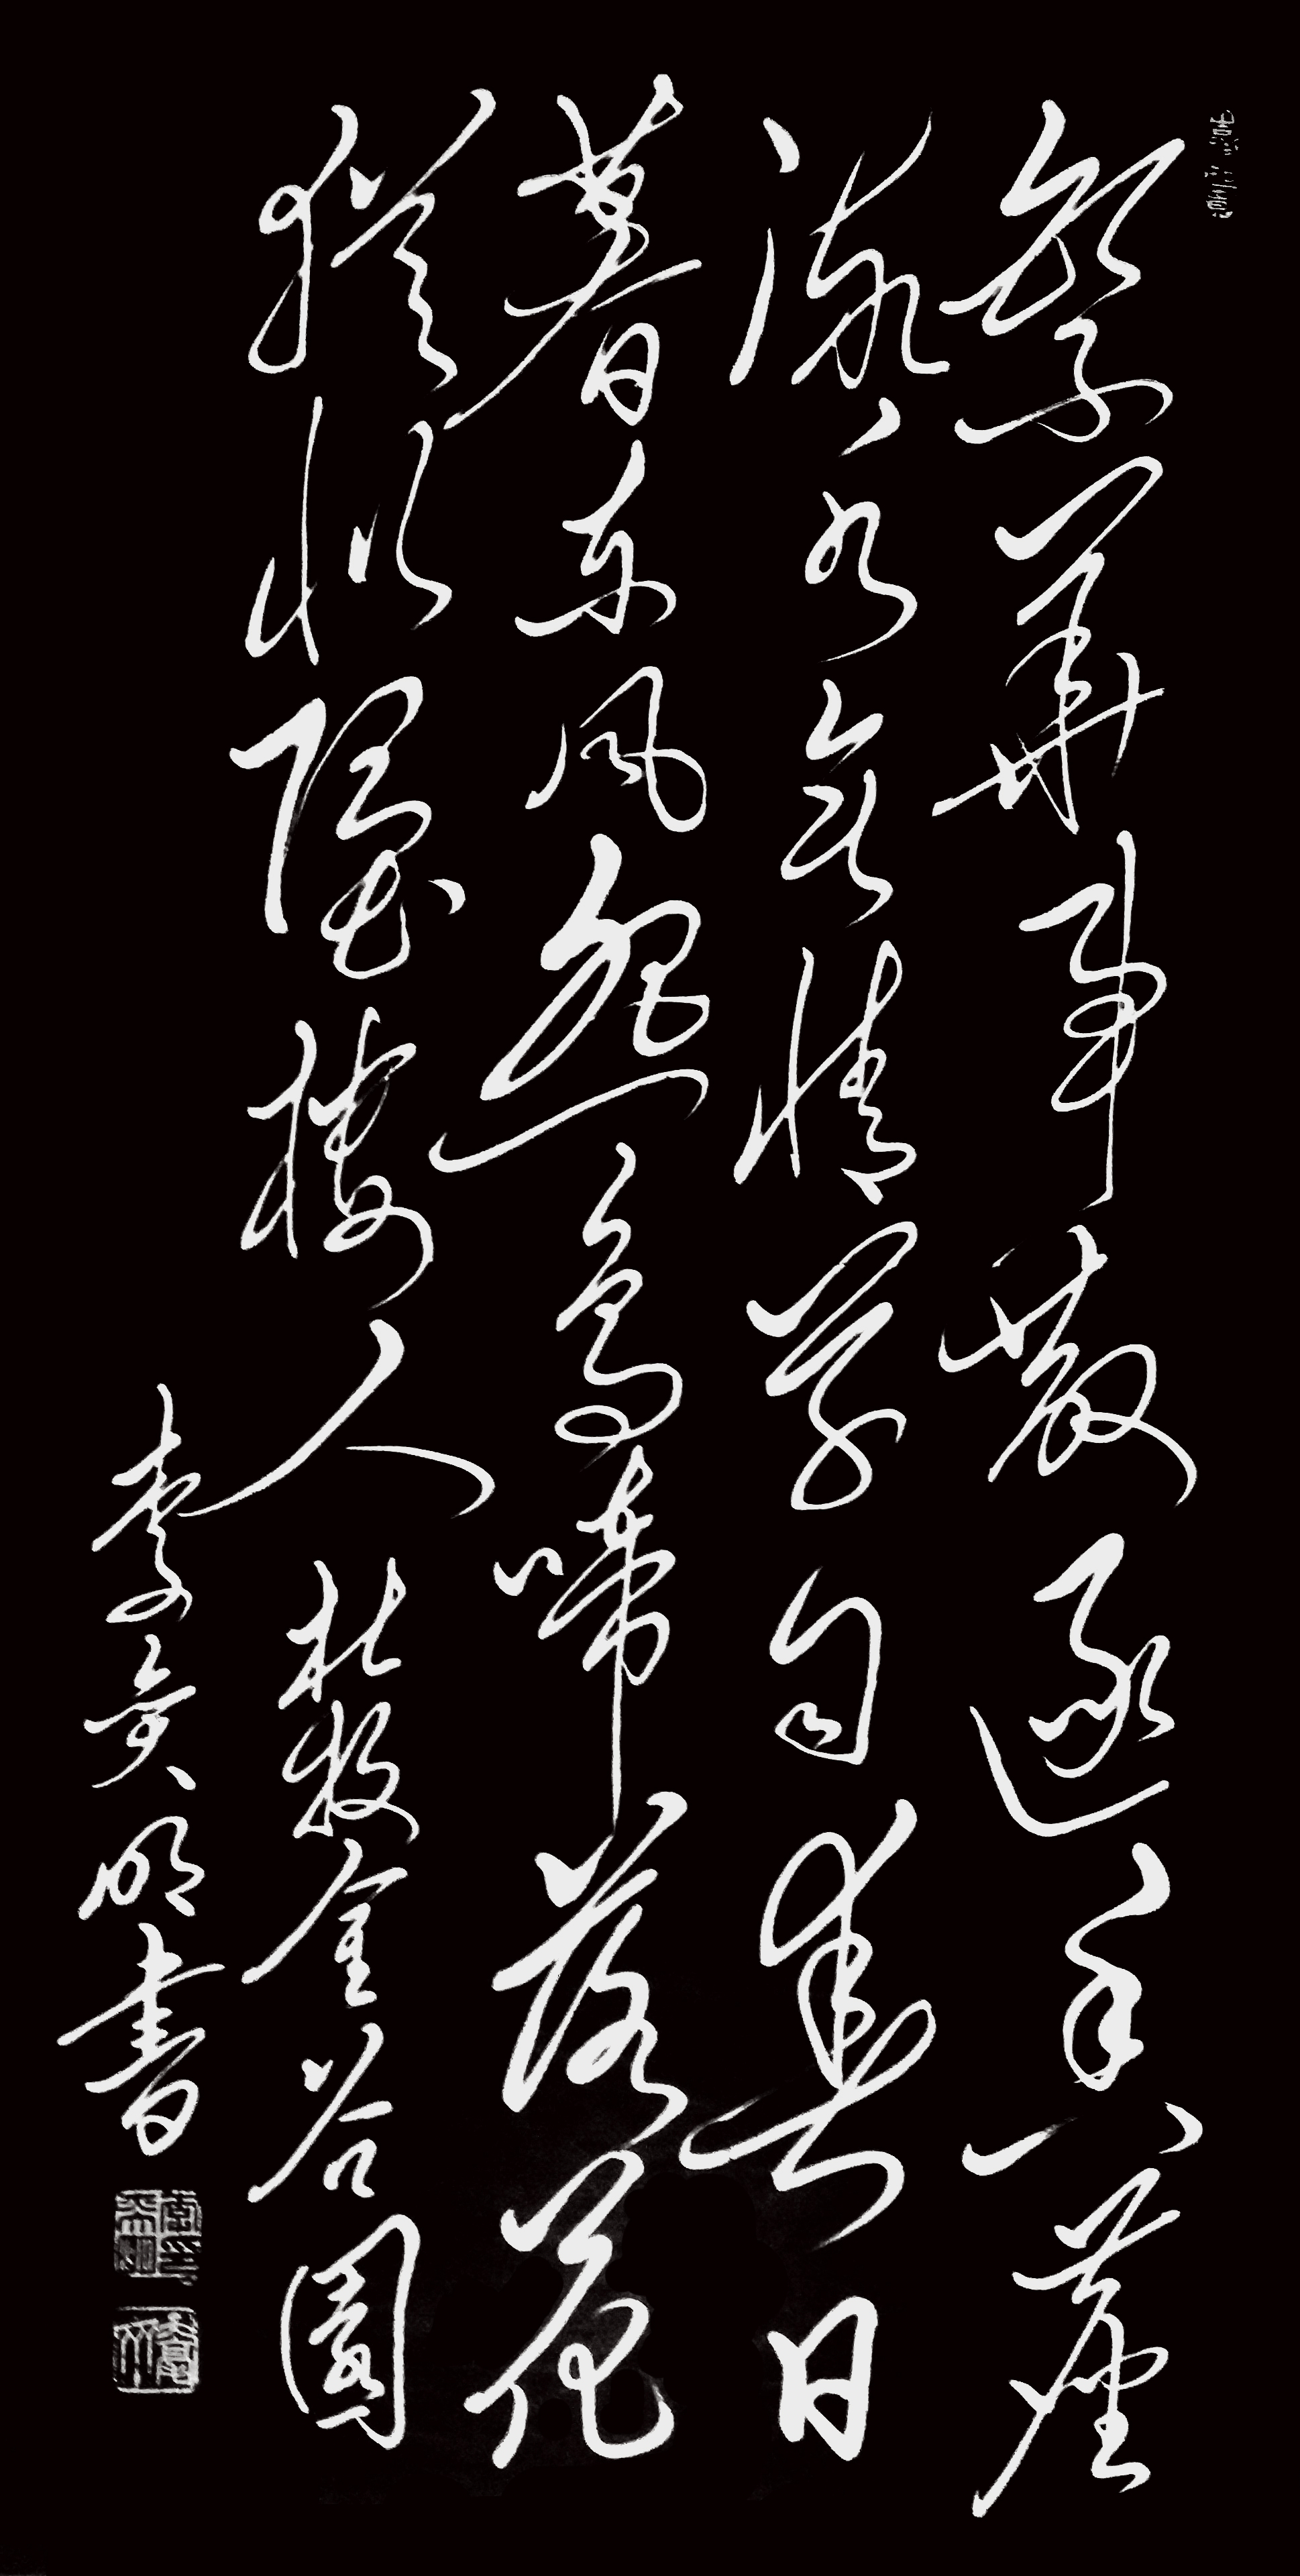 繁華事散逐香塵
流水無情草自春日
暮東風怨鳥啼落花
猶似墜樓人 杜牧金谷園
李奕明書